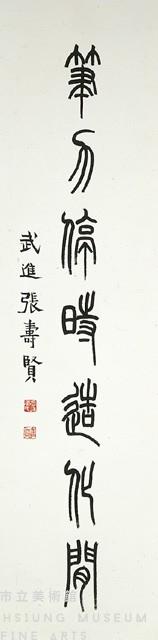 筆力停時造化閒
武進張壽賢
市立美術館
HSIUNG MUSEUM
FINE ARTS